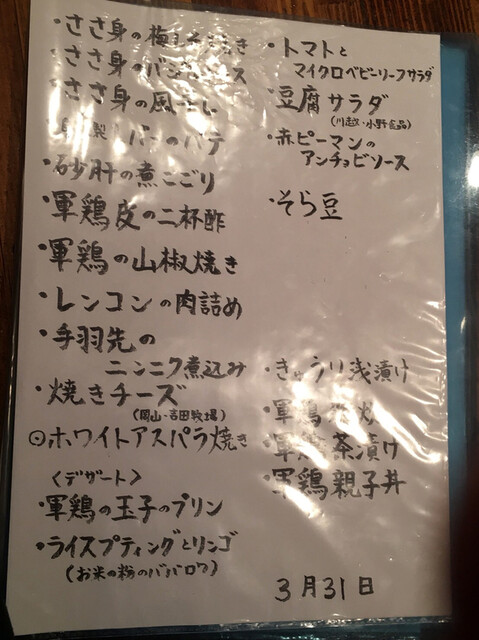 ・ささ身の梅しそ焼き
・ささ身のバジルソース
・ささ身の風干し
レバーのパテ
・砂肝の煮こごり
・軍鶏皮の二杯酢
・軍鶏の山椒焼き
・レンコンの肉詰め
・手羽先の
ニンニク煮込み
・焼きチーズ
(岡山・吉田牧場)
⊙ホワイトアスパラ焼き
〈デザート〉
・軍鶏の玉子のプリン
・ライスプティングとリンゴ
(お米の粉のババロワ)
・トマトと
マイクロベビーリーフサラダ
・豆腐サラダ
(川越・小野食品)
・赤ピーマンの
アンチョビソース
・そら豆
・きゅうり浅漬け
・軍鶏
・軍鶏茶漬け
・軍鶏親子丼
3月31日